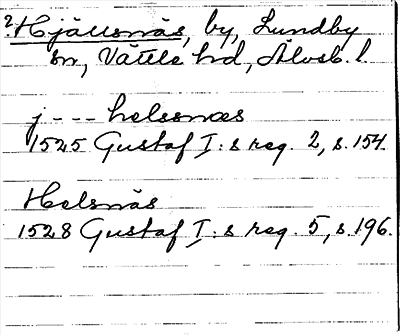 ? Hjällsnäs, by, Lundby
sn, Vättle hd, Älvsb. l.
j - - - helssnæs
1525 Gustaf I:s reg. 2, s. 154.
Helsnäs
1528 Gustaf I:s reg. 5, s. 196.